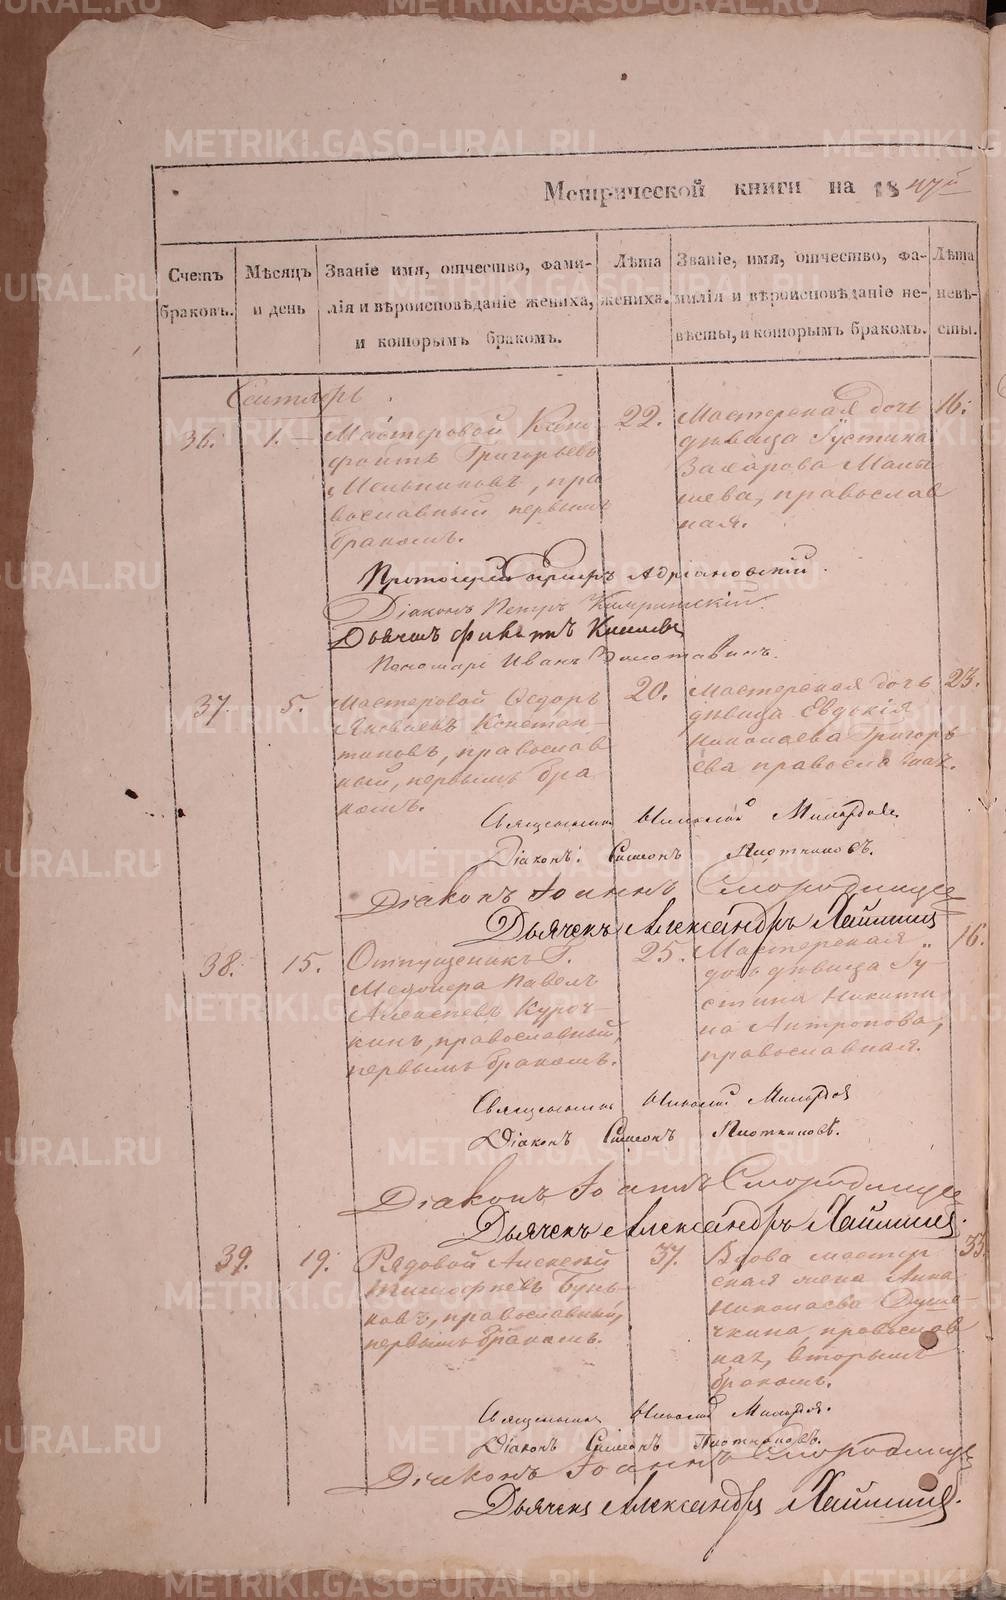 Метрической книги на 1847й
Счетъ браковъ.
Мѣсяцъ и день
Званіе имя, отчество, фами-
лія и вѣроисповѣданіе жениха,
и которымъ бракомъ.
Лѣта жениха.
Званіе, имя, отчество, фа-
милія и вѣроисповѣданіе не-
вѣсты, и которымъ бракомъ.
Лѣта невѣ-
сты.
Сентябрь
36. 1.
Мастеровой Ксено
фонтъ Григорьевъ
Мельниковъ, пра
вославный первымъ
бракомъ.
22.
Мастерская дочь
дѣвица Густина
Захарова Малы
шева, православ
ная.
16.
Протоіерей Адріановскій.
Діаконъ Петръ
Дьячекъ
Пономарь Иванъ Золотавинъ.
37. 5.
Мастеровой Ѳедоръ
Яковлевъ Констан-
тиновъ, православ
ный, первымъ бра
комъ.
20.
Мастерская дочь
дѣвица Евдокія
Николаева Григорь
ева православная.
23.
Священникъ Николай
Діаконъ Симеонъ Плотниковъ.
Діаконъ Іоаннъ Смородинцевъ
Дьячекъ Александръ
38. 15.
Отпущеникъ Г.
Меджера Павелъ
Алексѣевъ Куроч-
кинъ, православный,
первымъ бракомъ.
25.
Мастерская
дочь дѣвица Гу-
стина Никити
на Антропова,
православная.
16.
Священникъ Николай
Діаконъ Симеонъ Плотниковъ.
Діаконъ Іоаннъ Смородинцевъ
Дьячекъ Александръ
39. 19.
Рядовой Алексѣй
Тимофѣевъ Бунь-
ковъ, православный,
первымъ бракомъ.
37.
Вдова мастер
ская жена Анна
Николаева Душе-
чкина, православ
ная, вторымъ
бракомъ.
33.
Священникъ Николай
Діаконъ Симеонъ Плотниковъ.
Діаконъ Іоаннъ Смородинцевъ
Дьячекъ Александръ
METRIKI.GASO-URAL.RU